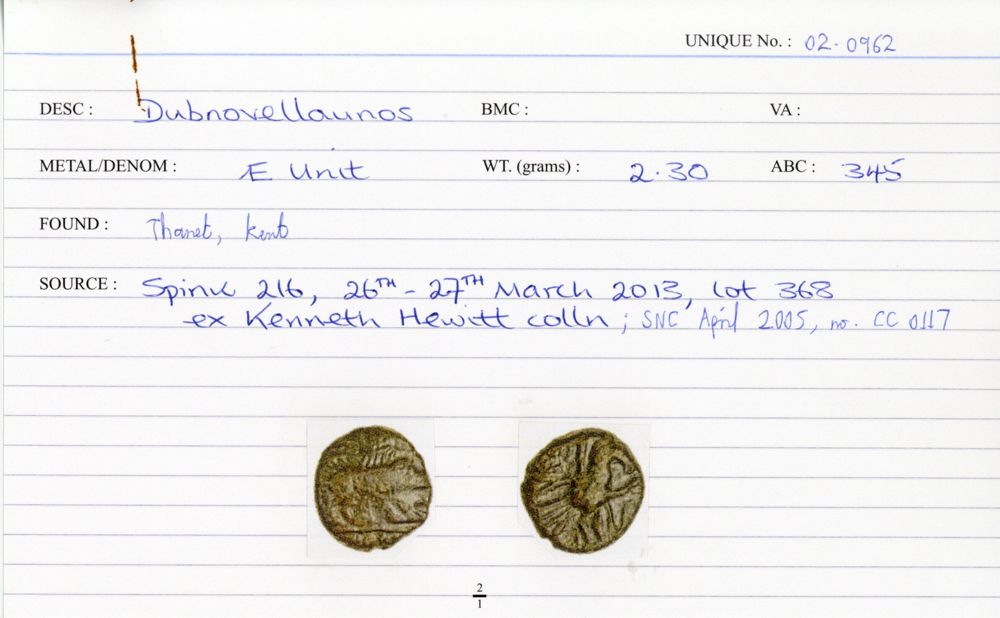 UNIQUE No. : 02·0962
DESC : Dubnovellaunos BMC : VA :
METAL/DENOM : Æ Unit WT. (grams) : 2·30 ABC : 345
FOUND : Thanet, Kent
SOURCE : Spink 216, 26TH - 27TH March 2013, lot 368
ex Kenneth Hewitt colln ; SNC April 2005, no. CC 0117
2
1